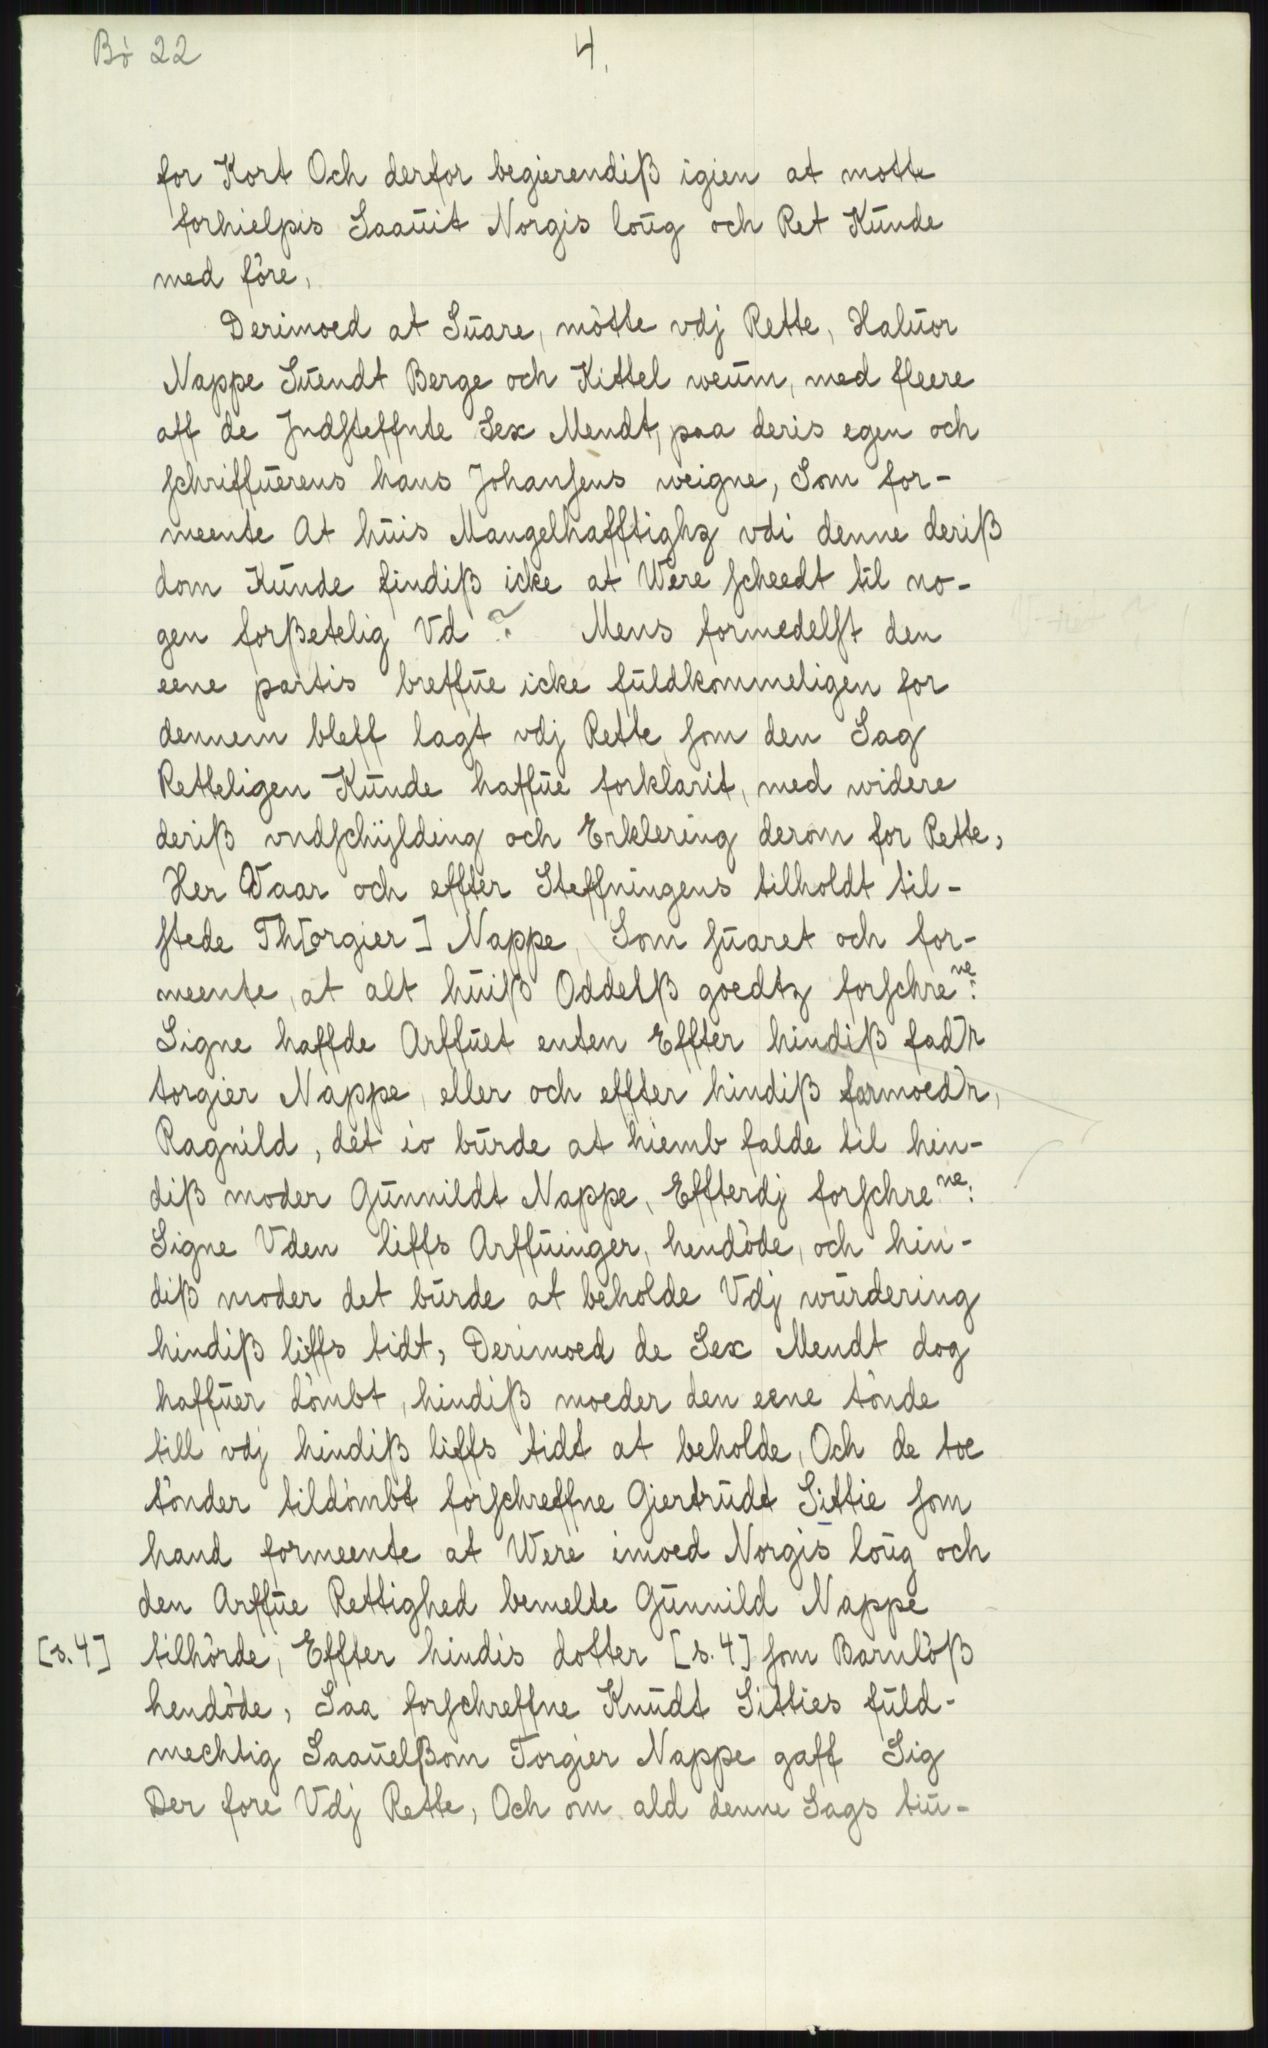 Bö 22
4.
for Kort Och derfor begierendiß igien at motte
forhielpis Saauit Norgis loug och Ret Kunde
med före,
Derimoed at Suare, mötte vdj Rette, Haluor
Nappe Suendt Berge och Kittel weum, med fleere
aff de Jndsteffnte Sex Mendt, paa deris egen och
schriffuerens hans Johansens weigne, Som for-
meente At huis Mangelhafftighz vdi denne deriß
dom Kunde findiß icke at Were scheedt til no-
gen forßetelig Vd ? Mens formedelst den
eene partis breffue icke fuldkommeligen for
dennem bleff lagt vdj Rette som den Sag
Retteligen Kunde haffue forklarit, med widere
deriß vndschÿlding och Erklering derom for Rette,
Her Vaar och effter Steffningens tilholdt til-
stede Th[orgier] Nappe, Som suaret och for-
meente, at alt huiß Oddelß goedtz forschrene:
Signe haffde Arffuet enten Effter hindiß fad)r
torgier Nappe, eller och effter hindiß farmoed)r,
Ragnild, det io burde at hiemb falde til hen-
diß moder Gunnildt Nappe, Effterdj forschrene:
Signe Vden liffs Arffuinger, hendöde, och hin-
diß moder det burde at beholde Vdj wurdering
hindiß liffs tidt, Derimoed de Sex Mendt dog
haffuer dömbt, hindiß moeder den eene tönde
till vdj hindiß liffs tidt at beholde, Och de toe
tönder tildömbt forschreffne Giertrudt Sittie som
hand formeente at Were imoed Norgis loug och
den Arffue Rettighed bemelte Gunnild Nappe
[s.4] tilhörde, Effter hindis dotter [s.4] som Barnlöß
hendöde, Saa forschreffne Knudt Sitties fuld-
mechtig Saauelßom Torgier Nappe gaff Sig
Der fore Vdj Rette, Och om ald denne Sags tiu-